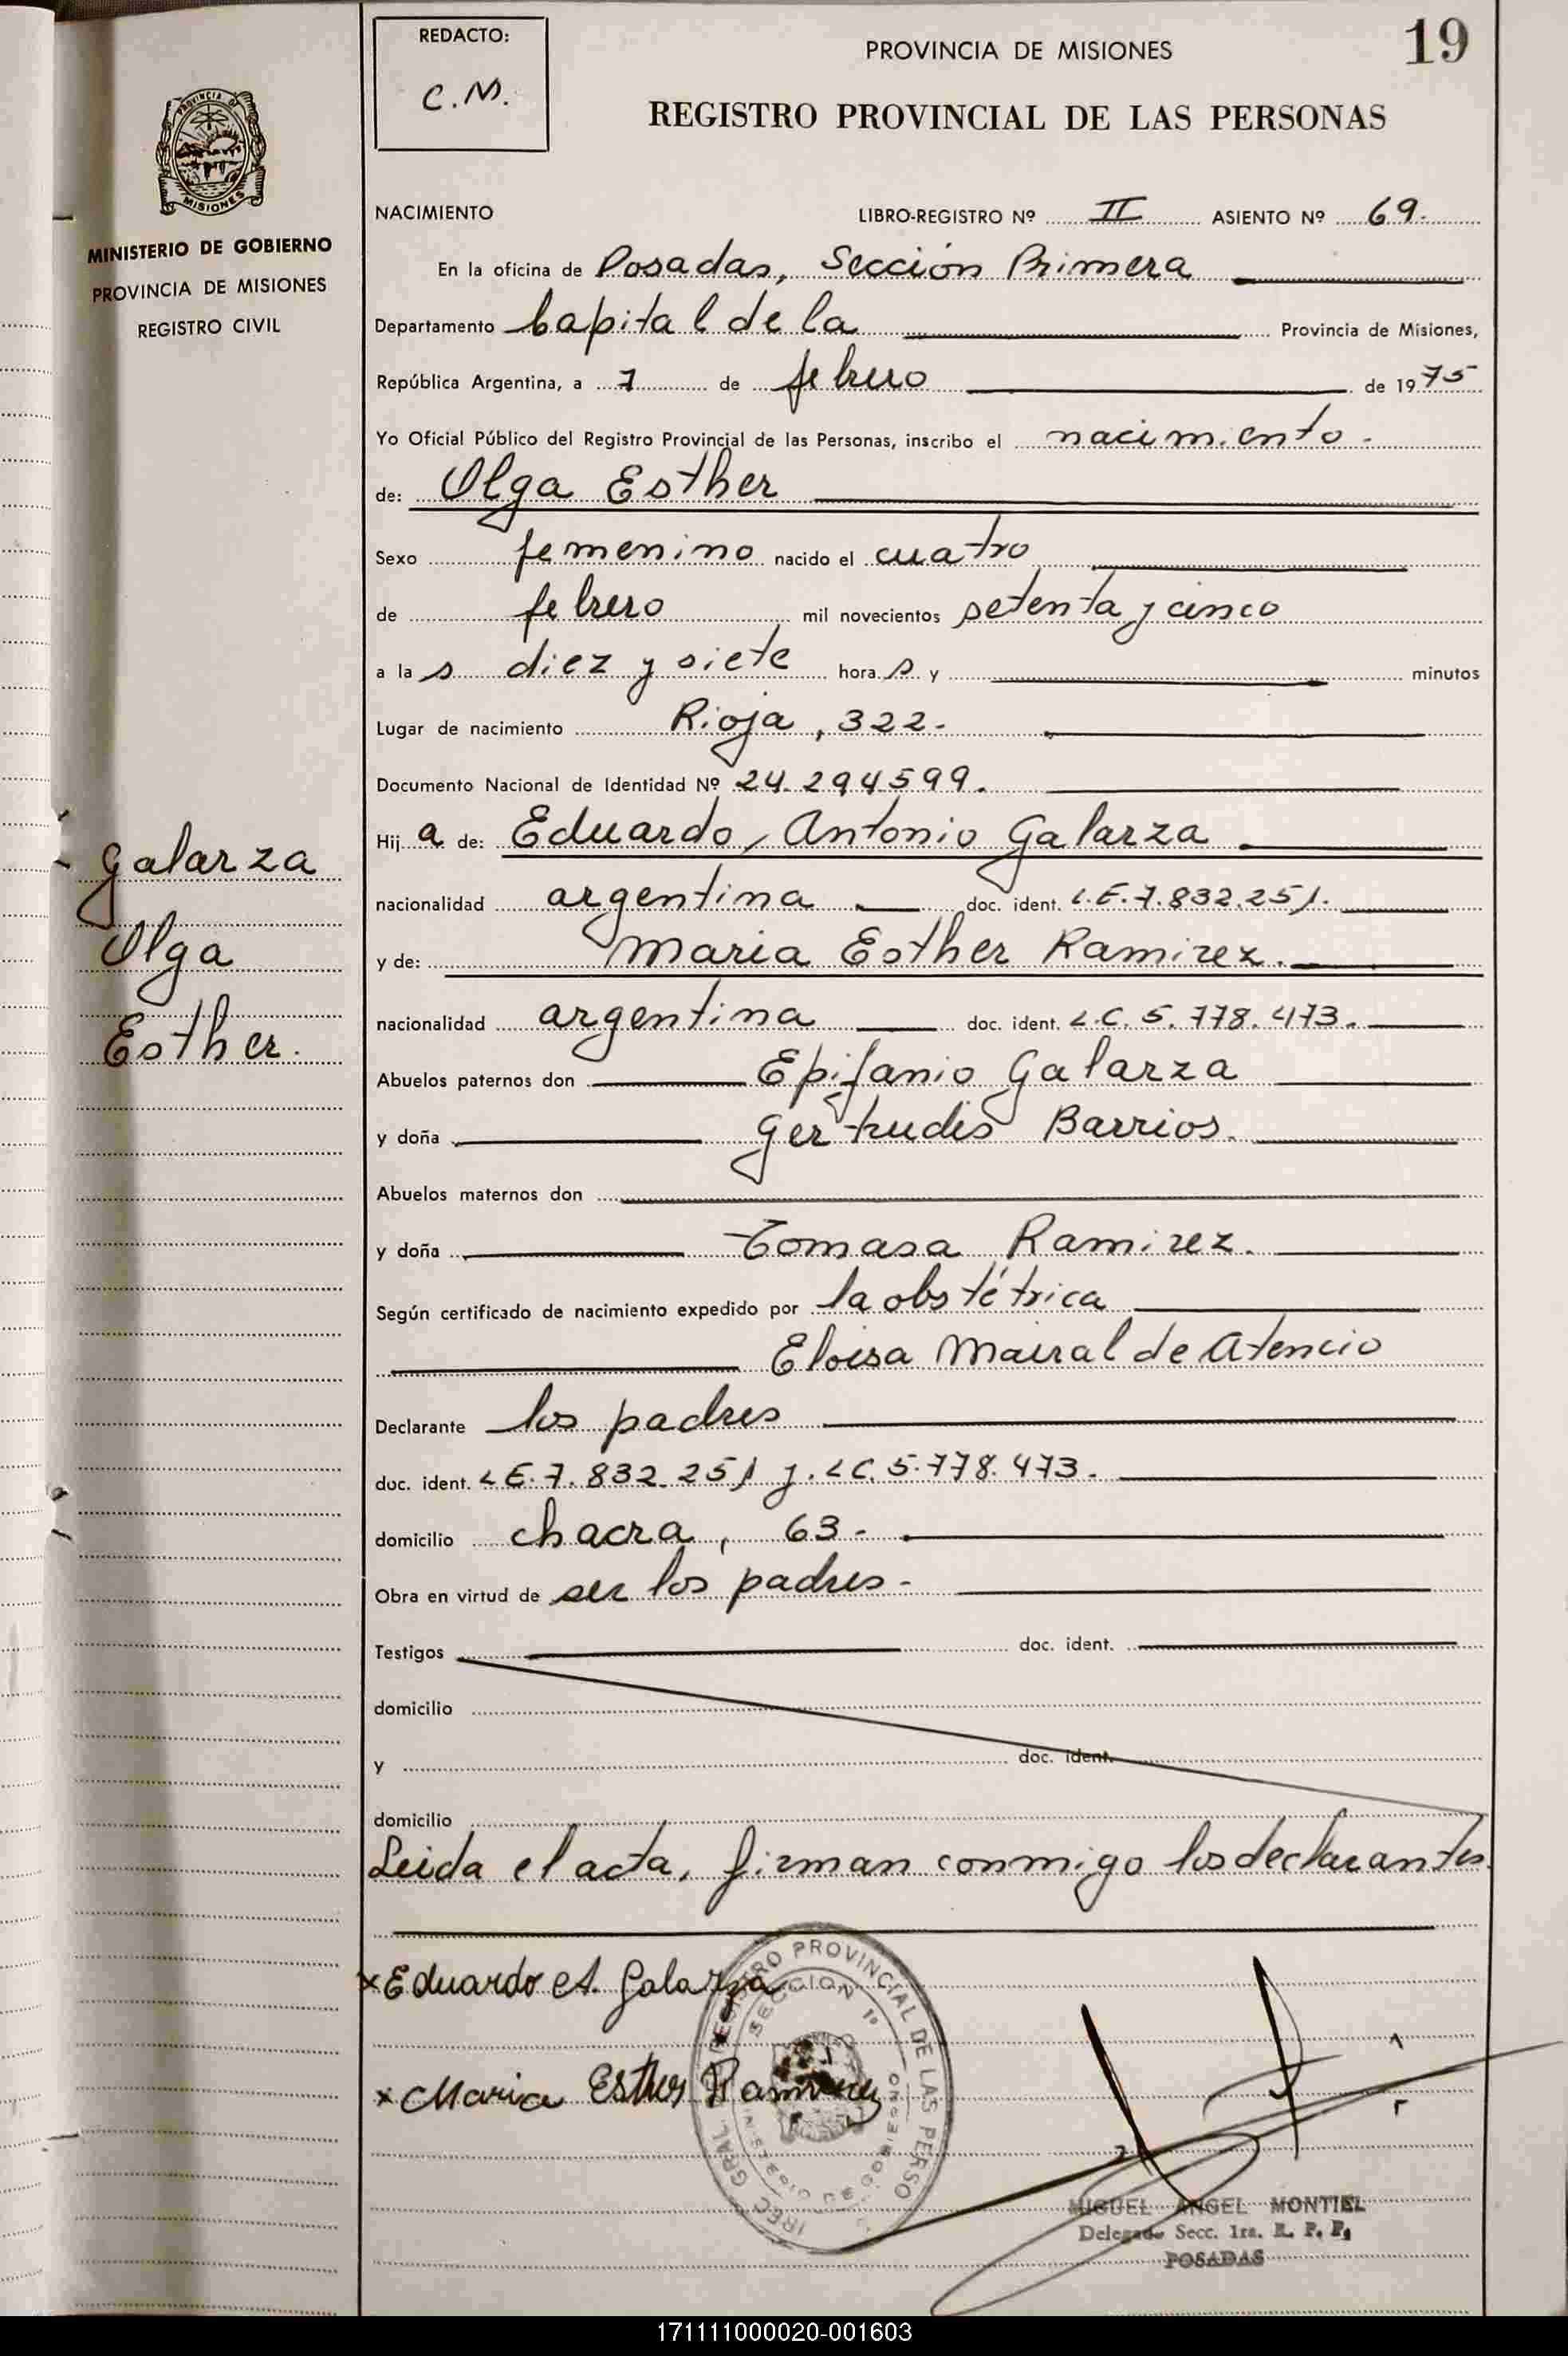 REDACTO:
C.M.
PROVINCIA DE MISIONES
19
REGISTRO PROVINCIAL DE LAS PERSONAS
PROVINCIA DE
MISIONES
MINISTERIO DE GOBIERNO
PROVINCIA DE MISIONES
REGISTRO CIVIL
NACIMIENTO LIBRO-REGISTRO Nº II ASIENTO Nº 69.
En la oficina de Posadas, Sección Primera
Departamento Capital de la Provincia de Misiones,
República Argentina, a 7 de febrero de 1975
Yo Oficial Público del Registro Provincial de las Personas, inscribo el nacimiento.
de: Olga Esther
Sexo femenino nacido el cuatro
de febrero mil novecientos setenta y cinco
a las diez y siete horas y minutos
Lugar de nacimiento Rioja, 322.
Documento Nacional de Identidad Nº 24.294599.
Hija de: Eduardo, Antonio Galarza
nacionalidad argentina doc. ident. L.E.7.832.251.
y de: Maria Esther Ramirez.
nacionalidad argentina doc. ident. L.C. 5.778.473.
Abuelos paternos don Epifanio Galarza
y doña Gertrudis Barrios.
Abuelos maternos don
y doña Tomasa Ramirez.
Según certificado de nacimiento expedido por la obstétrica
Eloisa Mairal de Atencio
Declarante los padres
doc. ident. LE.7.832.251 y LC.5.778.473.
domicilio chacra, 63.
Obra en virtud de ser los padres.
Testigos doc. ident.
domicilio
y doc. ident.
domicilio
Leida el acta, firman conmigo los declarantes.
Galarza
Olga
Esther.
x Eduardo A. Galarza
x Maria Esther Ramirez
REGISTRO PROVINCIAL DE LAS PERSO
SECCION 1º
MIGUEL ANGEL MONTIEL
Delegado Secc. 1ra. R. P. P.
POSADAS
171111000020-001603